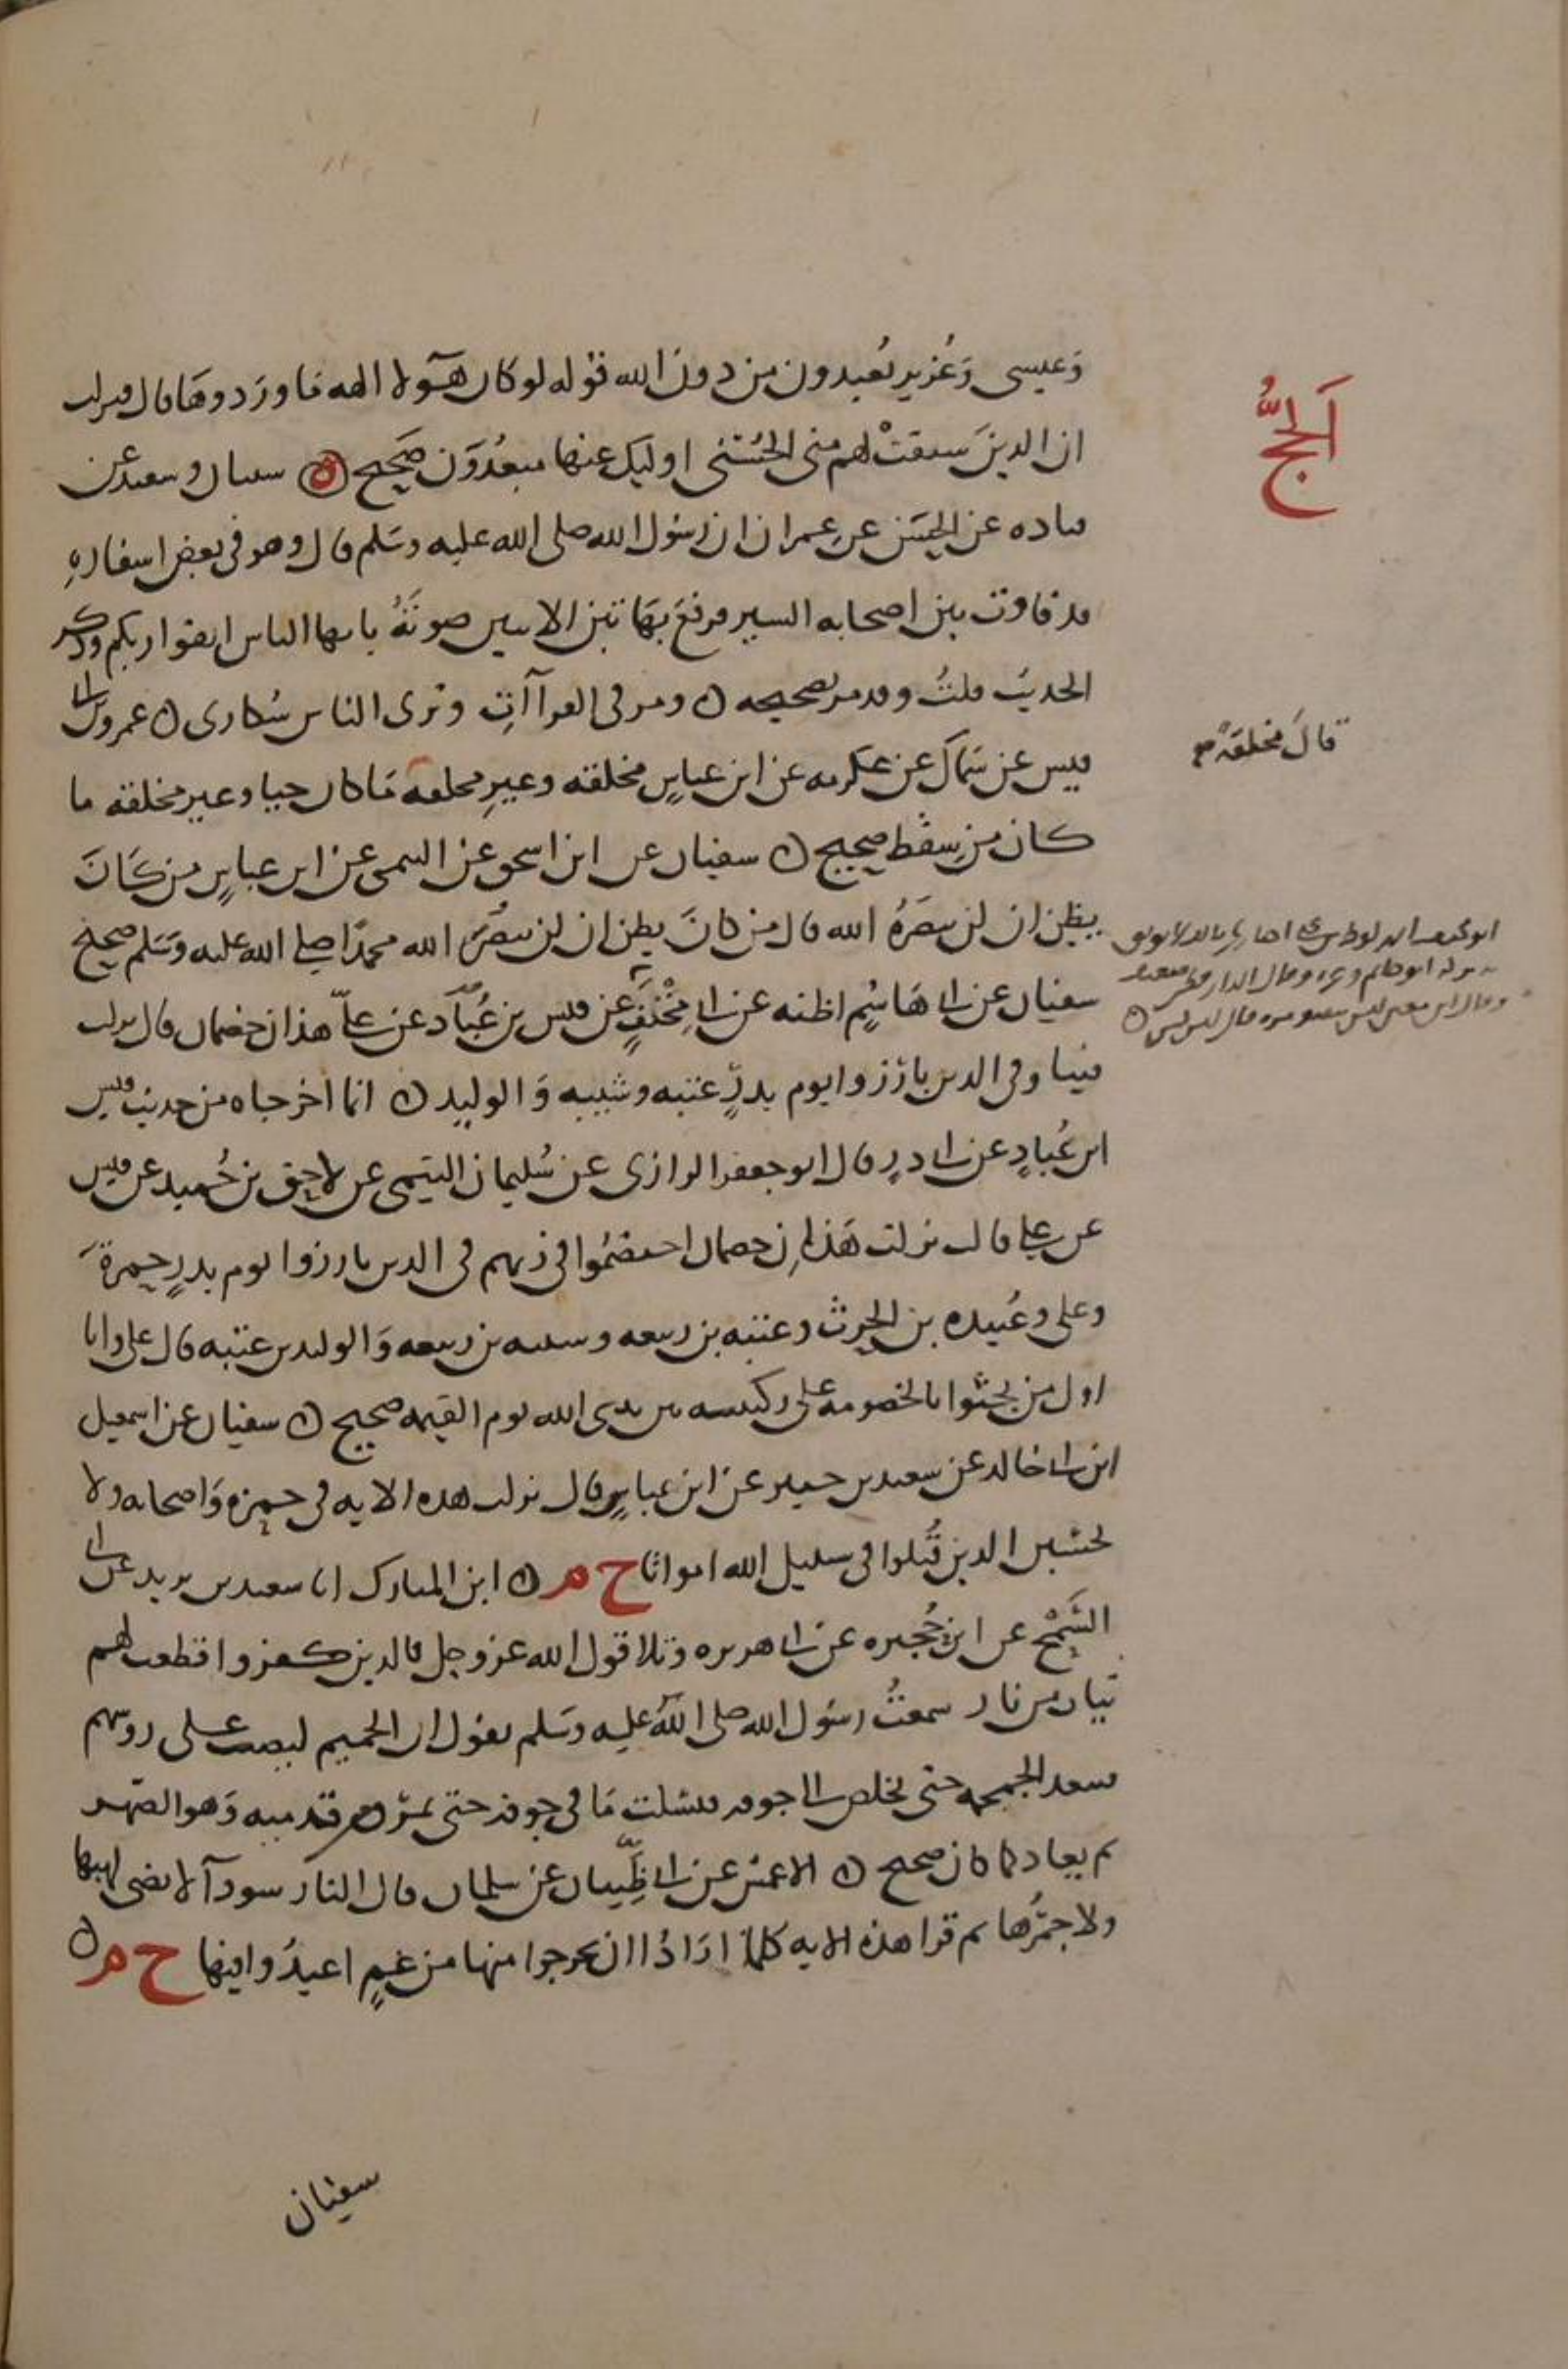 وَعيسى وَعُزير يُعبدون من دون الله قوله لو كان هؤلا الهه ما وردوها قال فنزلت
ان الذينَ سبقتْ لهم منى الحُسْنى اوليك عنها مبعدُوَن صَحيح ن سفيان وسعيد عن
قتاده عن الحسَن عن عمران ان رسُول الله صلى الله عليه وسَلم قال وهو فى بعض اسفارهِ
قد فاوت بين اصحابه السير فرفعَ بهَاتيْن الايتين صوتَهُ يا يها الناس اتقوا ربكم وذكر
الحديث قلتُ وقد مر تصحيحه ن ومر فى القراآتِ وترى الناس سُكارى ن عمرو بن ابى
قيس عن سَماك عن عكرمه عن ابن عباسٍ مخلقته وغيرِ مخلقه مَا كان حيا وغير مخلقته ما
كان من سِقط صحيح ن سفيان عن ابن اسحق عن التميمى عن ابن عباسٍ من كَانَ
يظن ان لن ينصرَهُ الله قال من كانَ يظن ان لن ينصُرَ الله محمدًا صلى الله عليه وَسَلم صحيح
سفيان عن ابى هَاشِم اظنه عن ابى مِجْلَزٍ عن قيس بن عُبَاد عن علىّ هذان خصمان قال نزلت
فينا وفى الذين بارَزوا يوم بدرٍ عتبه وشيبه وَالوليد ن انما اخرجاه من حديث قيس
ابن عُبادٍ عن ابى ذرٍ قال ابو جعفر الرازى عن سُليمان التيمى عن لاحق بن حُميد عن قيس
عن على قال نزلت هَذانِ خصمان اختصمُوا فى ربهم فى الذين بارزوا يوم بدرٍ حمزةَ
وعلى وعُبيده بن الحرث وعتبه بن ربيعه وشيبه بن ربيعه وَالوليد بن عتبه قال على وانا
اول من يجثوا للخصومه على ركبتيه بين يدى الله يوم القيمه صحيح ن سفيان عن اسمعيل
ابن ابى خالد عن سعيد بن جبير عن ابن عباسٍ قال نزلت هذه الايه فى حمزه وَاصحابه ولا
تحسَبن الذين قُتلوا فى سبيل الله امواتا خ م ن ابن المبارك انا سعيد بن يزيد عن ابى
السَمْح عن ابن حُجَيره عن ابى هريره وتلا قول الله عز وجل فالذين كفروا قطعت لهم
ثياب من نار سمعتُ رسُول الله صلى الله عليه وسَلم يقول ان الحميم ليصب على روسهم
فينفد الجمجمه حتى يخلص الى جوفه فيسْلت مَا فى جوفه حتى يمرُق قدميه وَهو الصَهر
ثم يعاد كما كان صحيح ن الاعمش عن ابى ظَبيان عن سلمان قال النار سودآ لا يضى لهيبها
ولا جمرُها ثم قرا هذه الايه كلما ارَادُوا ان يخرجوا منها من غمٍ اعيدُوا فيها خ م ن
سفيان
اَلحَجُّ
قالَ مخلقةً